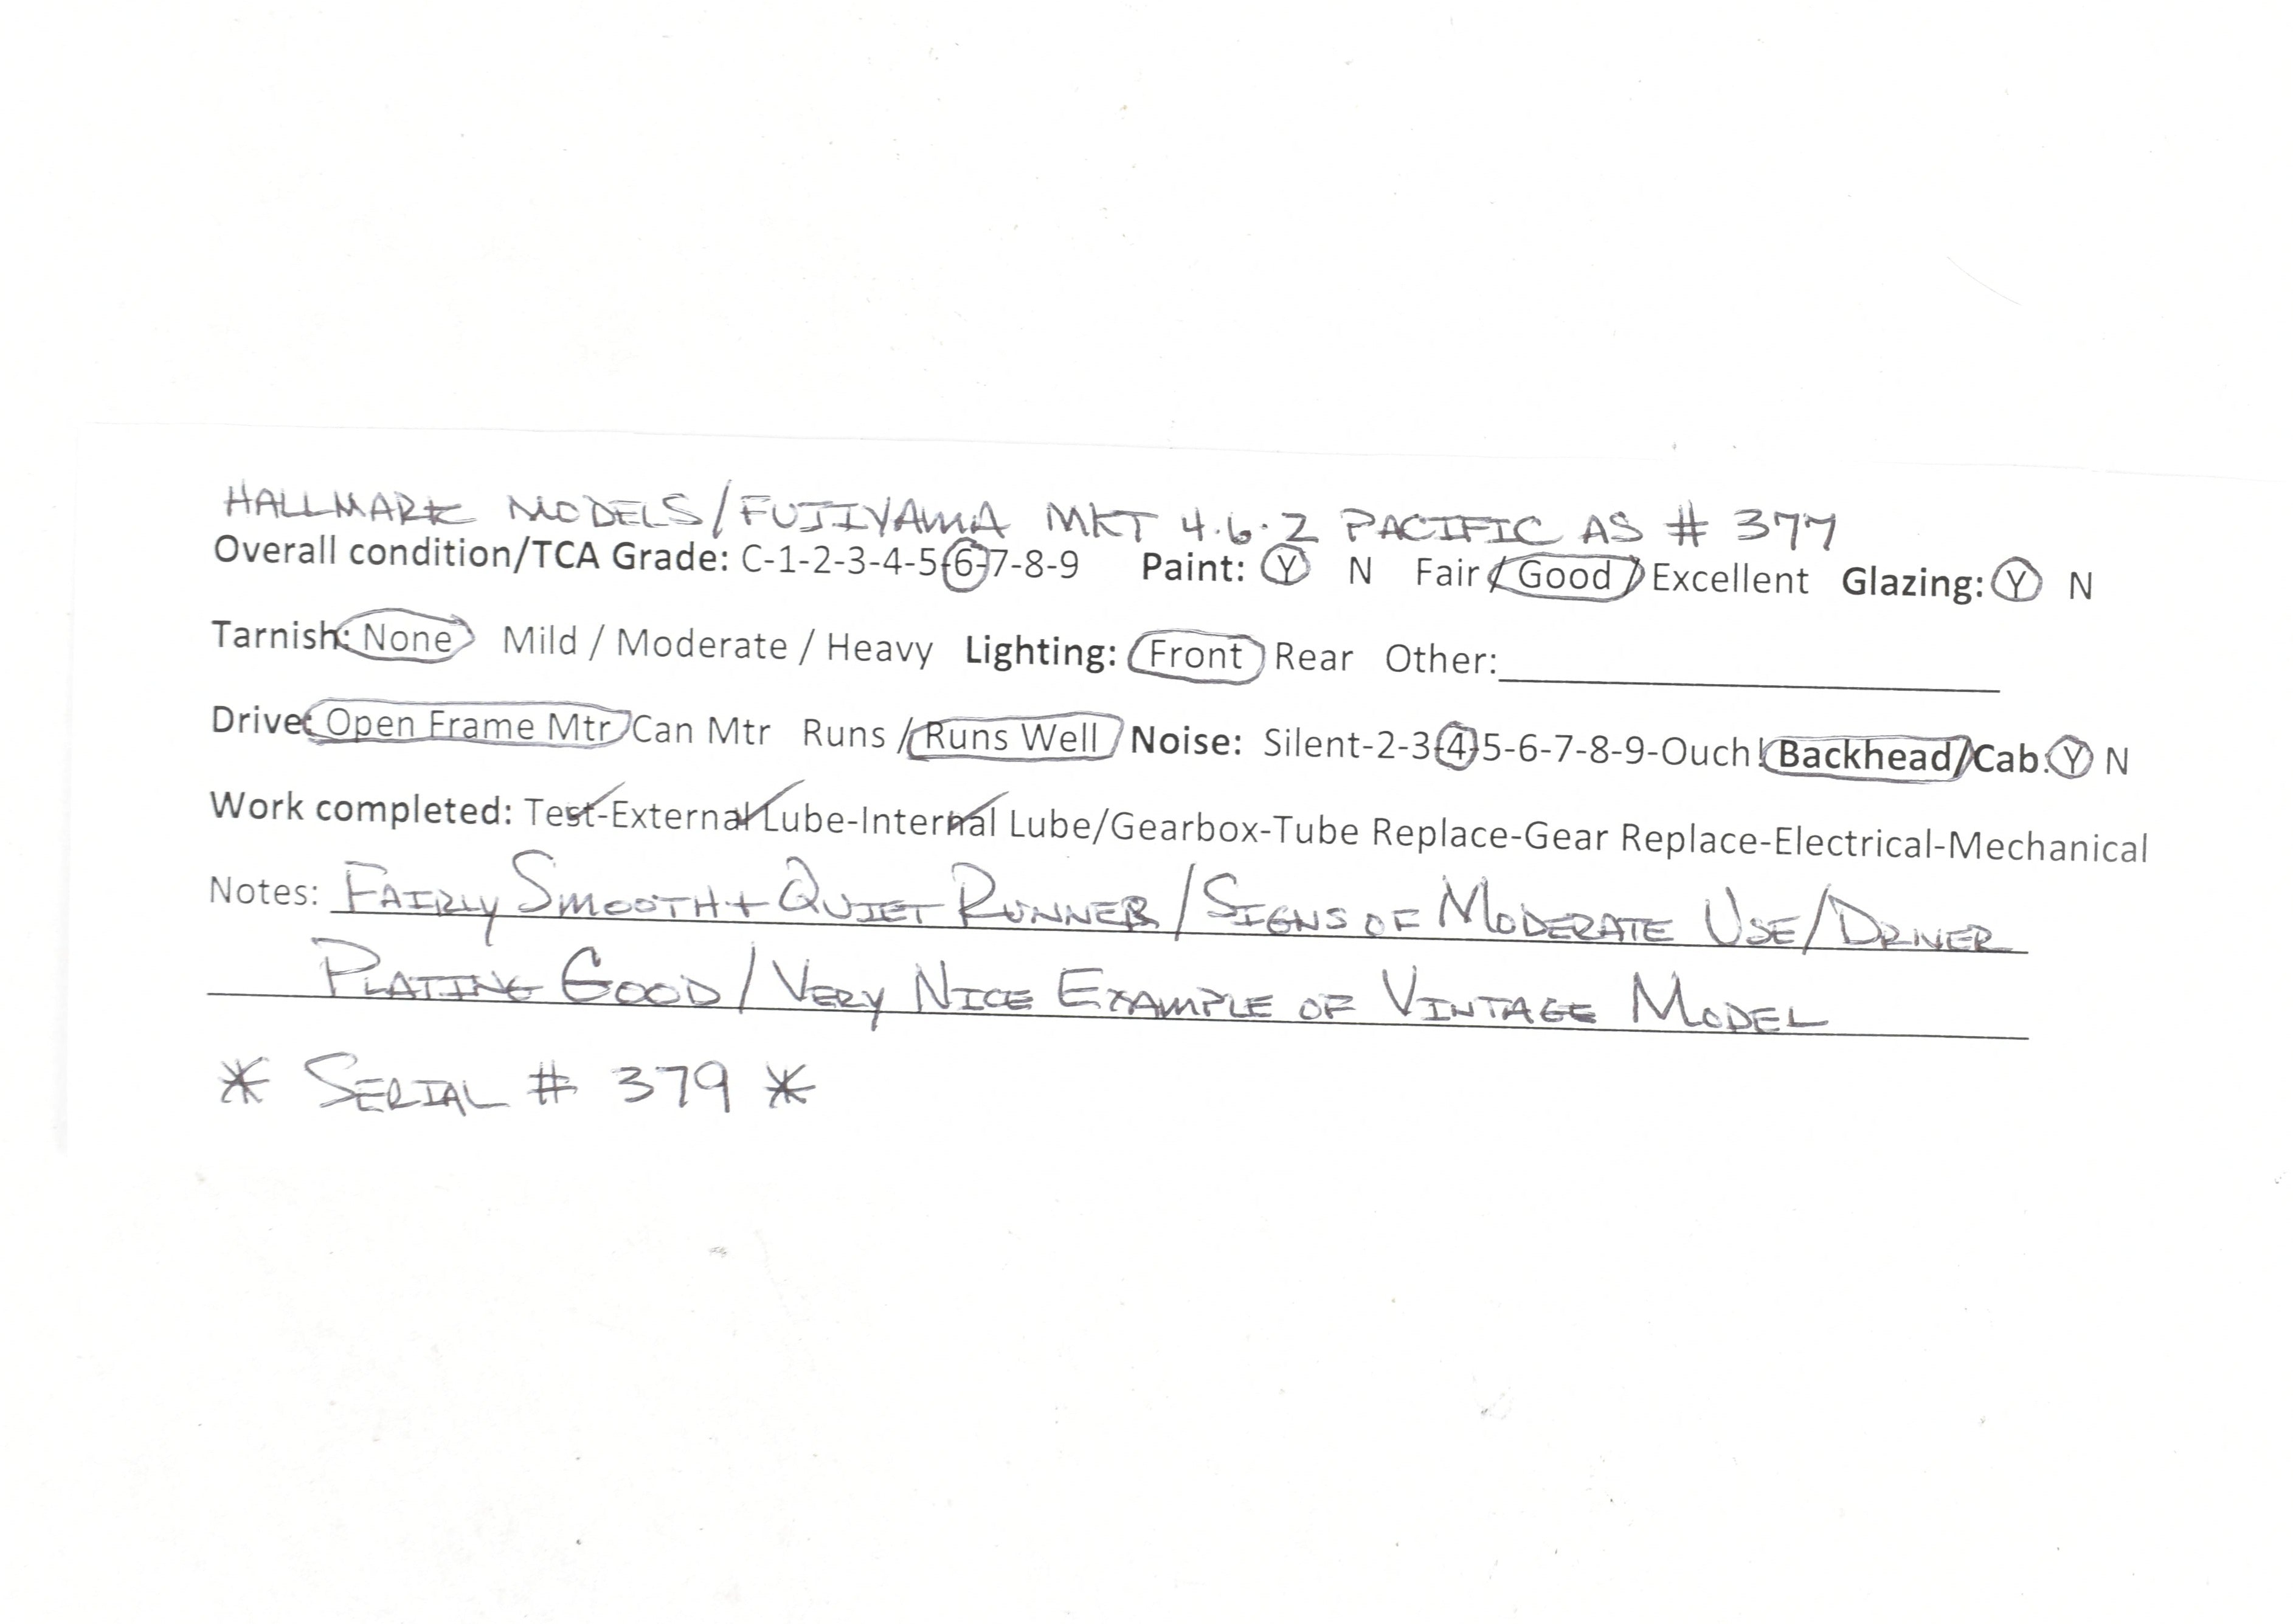 HALLMARK MODELS/FUJIYAMA MKT 4.6.2 PACIFIC AS # 377
Overall condition/TCA Grade: C-1-2-3-4-5-6-7-8-9 Paint: Y N Fair / Good / Excellent Glazing: Y N
Tarnish: None Mild / Moderate / Heavy Lighting: Front Rear Other:
Drive: Open Frame Mtr Can Mtr Runs / Runs Well Noise: Silent-2-3-4-5-6-7-8-9-Ouch! Backhead/Cab: Y N
Work completed: Test-External Lube-Internal Lube/Gearbox-Tube Replace-Gear Replace-Electrical-Mechanical
Notes: FAIRLY SMOOTH + QUIET RUNNER / SIGNS OF MODERATE USE / DRIVER
PLATING GOOD / VERY NICE EXAMPLE OF VINTAGE MODEL
* SERIAL # 379 *